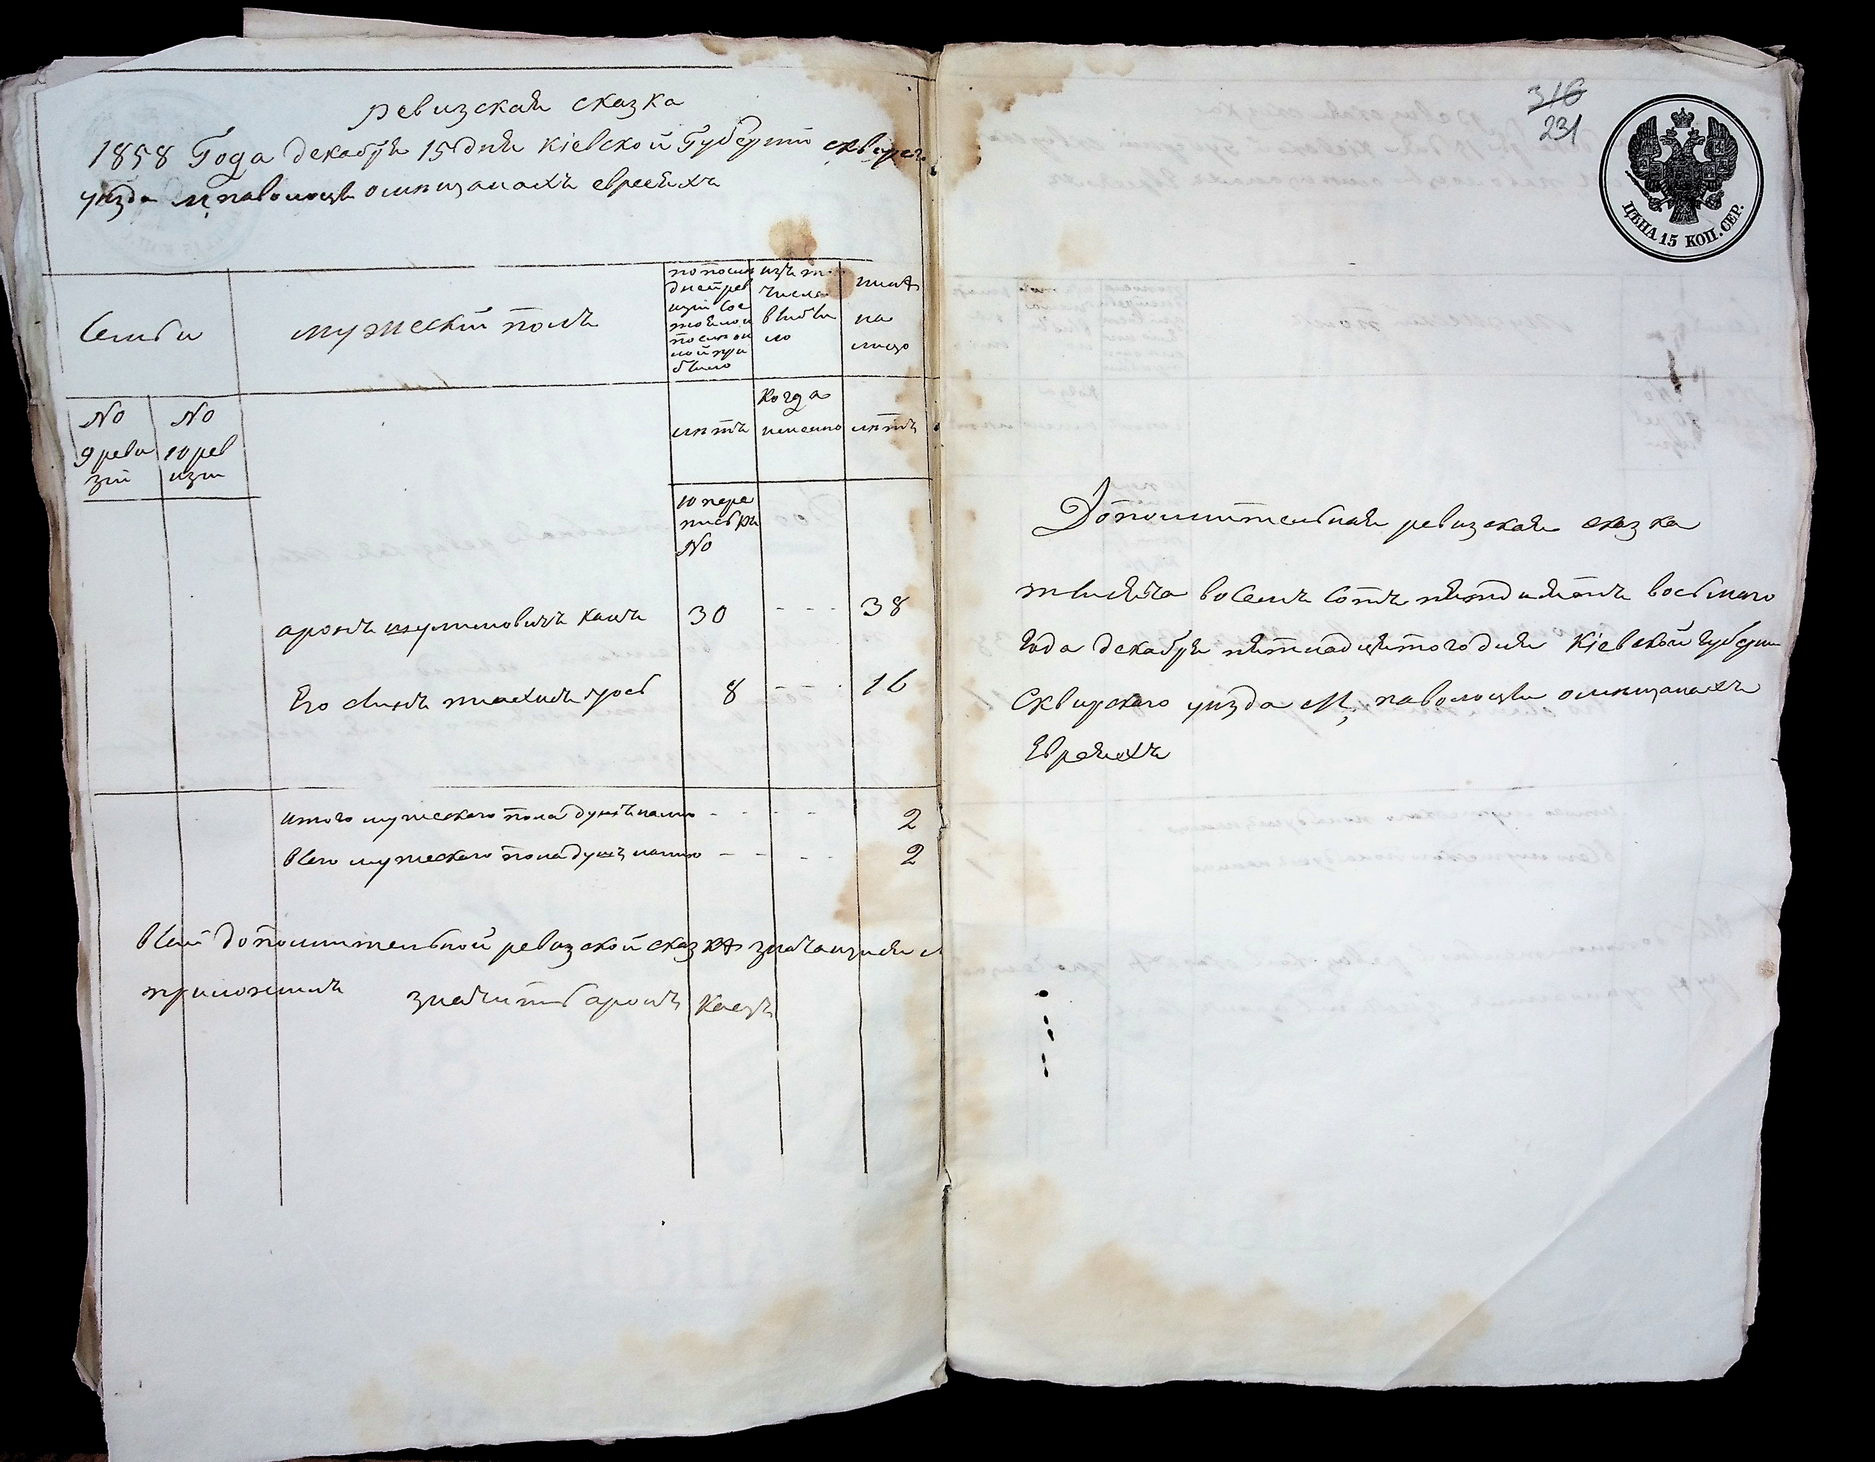 ревизская сказка
1858 Года декабря 15 дня Кіевской Губерніи сквирск
уѣзда м, паволочи омѣщанахъ евреяхъ
Семьи
мужескій полъ
попосле
дней рев
изіи сос
тояло и
после он
ой при
было
изъ т.
числа
выбы
ло
нынѣ
на
лицо
No
9 реви
зіи
No
10 рев
изіи
лѣтъ
Когда
именно
лѣтъ
10 пере
письри
No
аронъ шулимовичъ кацъ 30 - - - 38
Его сынъ 8 - - - 16
итого мужеского пола душъ налицо - - - - 2
всего мужеского пола душъ налицо - - - - 2
всей дополнительной ревизской сказкѣ
значитъ аронъ Кацъ
316
231
ЦѢНА 15 КОП. СЕР.
Дополнительная ревизская сказка
тысяча восемь сотъ пятдесятъ восьмаго
Года декабря пятнадцятого дня Кіевской губерни
Сквирского уѣзда М, паволочи омѣщанахъ
Евреяхъ